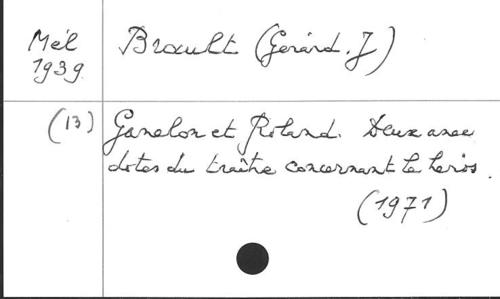 Mél Brault (Gerard. J)
1939
(13) Ganelon et Roland. Deux anec
dotes du traître concernant le héros.
(1971)